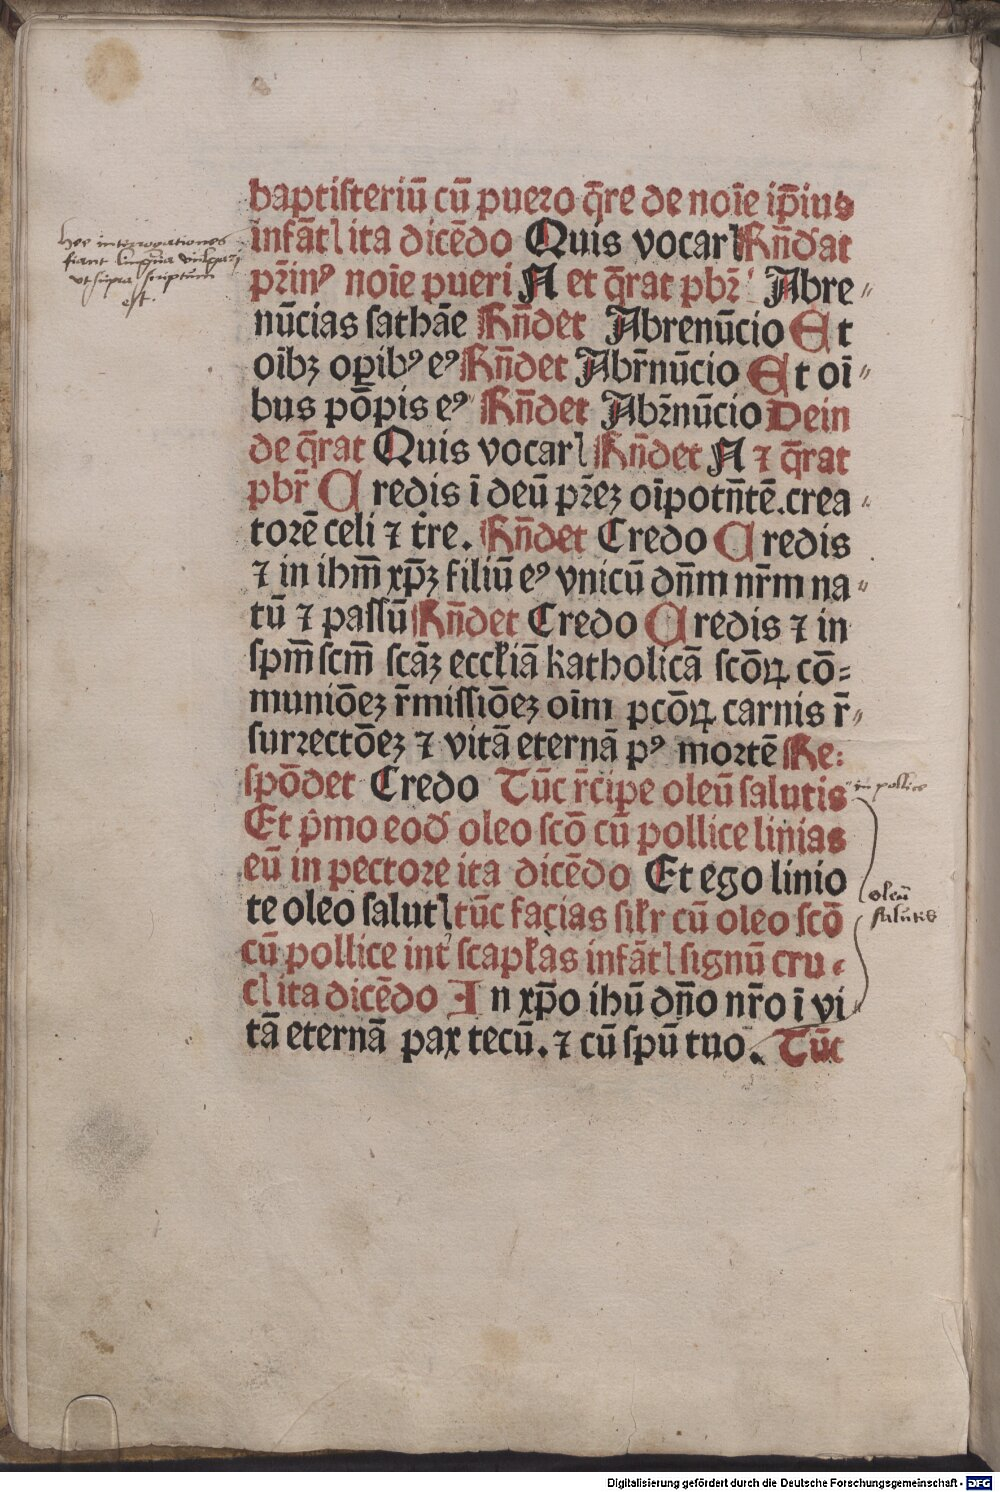 baptisteriū cū puero q̄re de noīe ip̄ius
infātꝭ ita dicēdo Quis vocarꝭ Rn̄dāt
pr̄in⁹ noīe pueri N et q̄rat pbr̄ Abre〃
nūcias sathāe Rn̄det Abrenūcio Et
oībꝫ oꝑib⁹ e⁹ Rn̄det Abr̄nūcio Et oī〃
bus pōpis e⁹ Rn̄det Abr̄nūcio Dein
de q̄rat Quis vocarꝭ Rn̄det N ⁊ q̄rat
pbr̄ Credis ī deū pr̄eꝫ oīpotn̄tē.crea〃
torē celi ⁊ tr̄e. Rn̄det Credo Credis
⁊ in ihm̄ xp̄ꝫ filiū e⁹ vnicū dn̄m nr̄m na〃
tū ⁊ passū Rn̄det Credo Credis ⁊ in
spm̄ scm̄ scāꝫ eccl̄iā katholicā scōꝝ cō=
muniōeꝫ r̄missiōeꝫ oīm pcōꝝ carnis r̄〃
surrectōeꝫ ⁊ vitā eternā p⁹ mortē Re:
spōdet Credo Tūc r̄cipe oleū salutis
Et p̄mo eod̄ oleo scō cū pollice linias
eū in pectore ita dicēdo Et ego linio
te oleo salutꝭ tūc facias sil̄r cū oleo scō
cū pollice int̄ scapl̄as infātꝭ signū cru〃
cꝭ ita dicēdo In xp̄o ihū dn̄o nr̄o ī vi〃
tā eternā pax tecū. ⁊ cū spū tuo. Tūc
Hee interrogationes
fiant lingua vulgari
vt supra scriptum
est.
in pollice
oleū
salutis
Digitalisierung gefördert durch die Deutsche Forschungsgemeinschaft - DFG